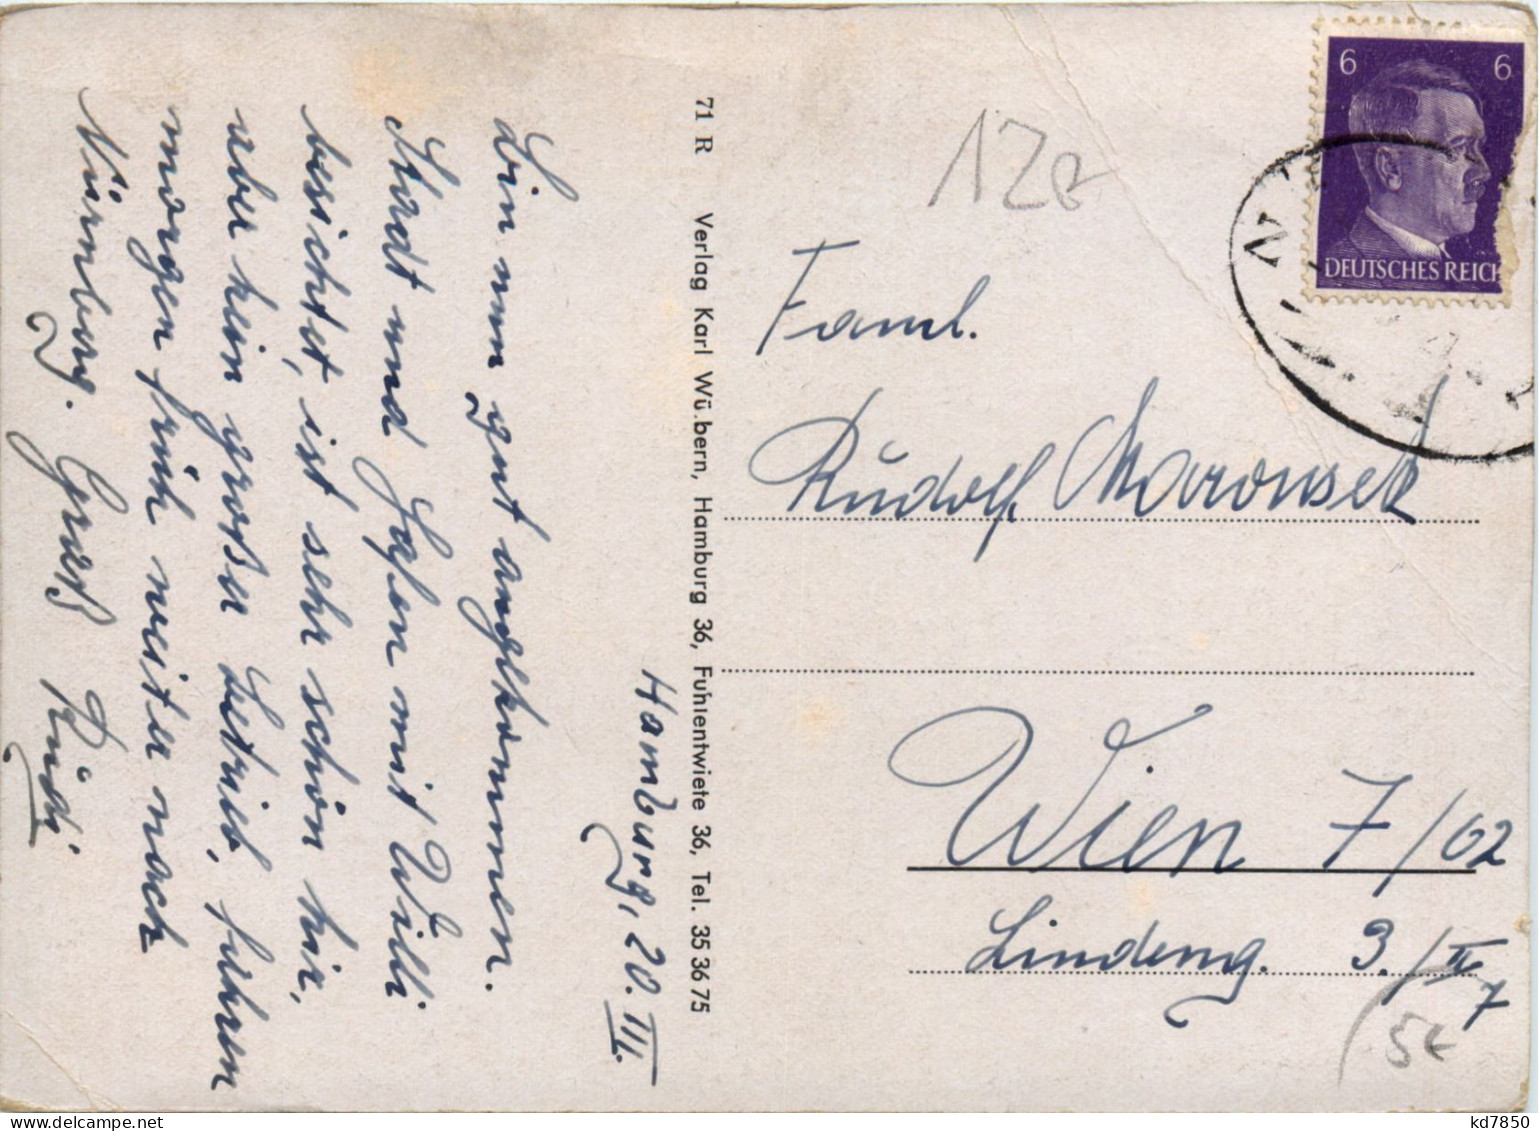 Hamburg, 20. III.
Bin nun gut angekommen.
Stadt und Hafen mit Willi
besichtet, ist sehr schön hir,
aber kein großer Betrieb, fahren
morgen früh weiter nach
Nürnberg. Gruß Rudi
71 R Verlag Karl Wü.bern, Hamburg 36, Fuhlentwiete 36, Tel. 35 36 75
12€
6 6
DEUTSCHES REICH
Faml.
Rudolf
Wien 7/62
Lindeng. 3./II
7
5€
kd7850